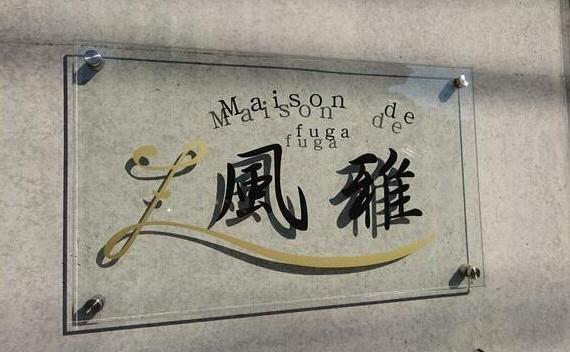 Maison de
fuga
風雅